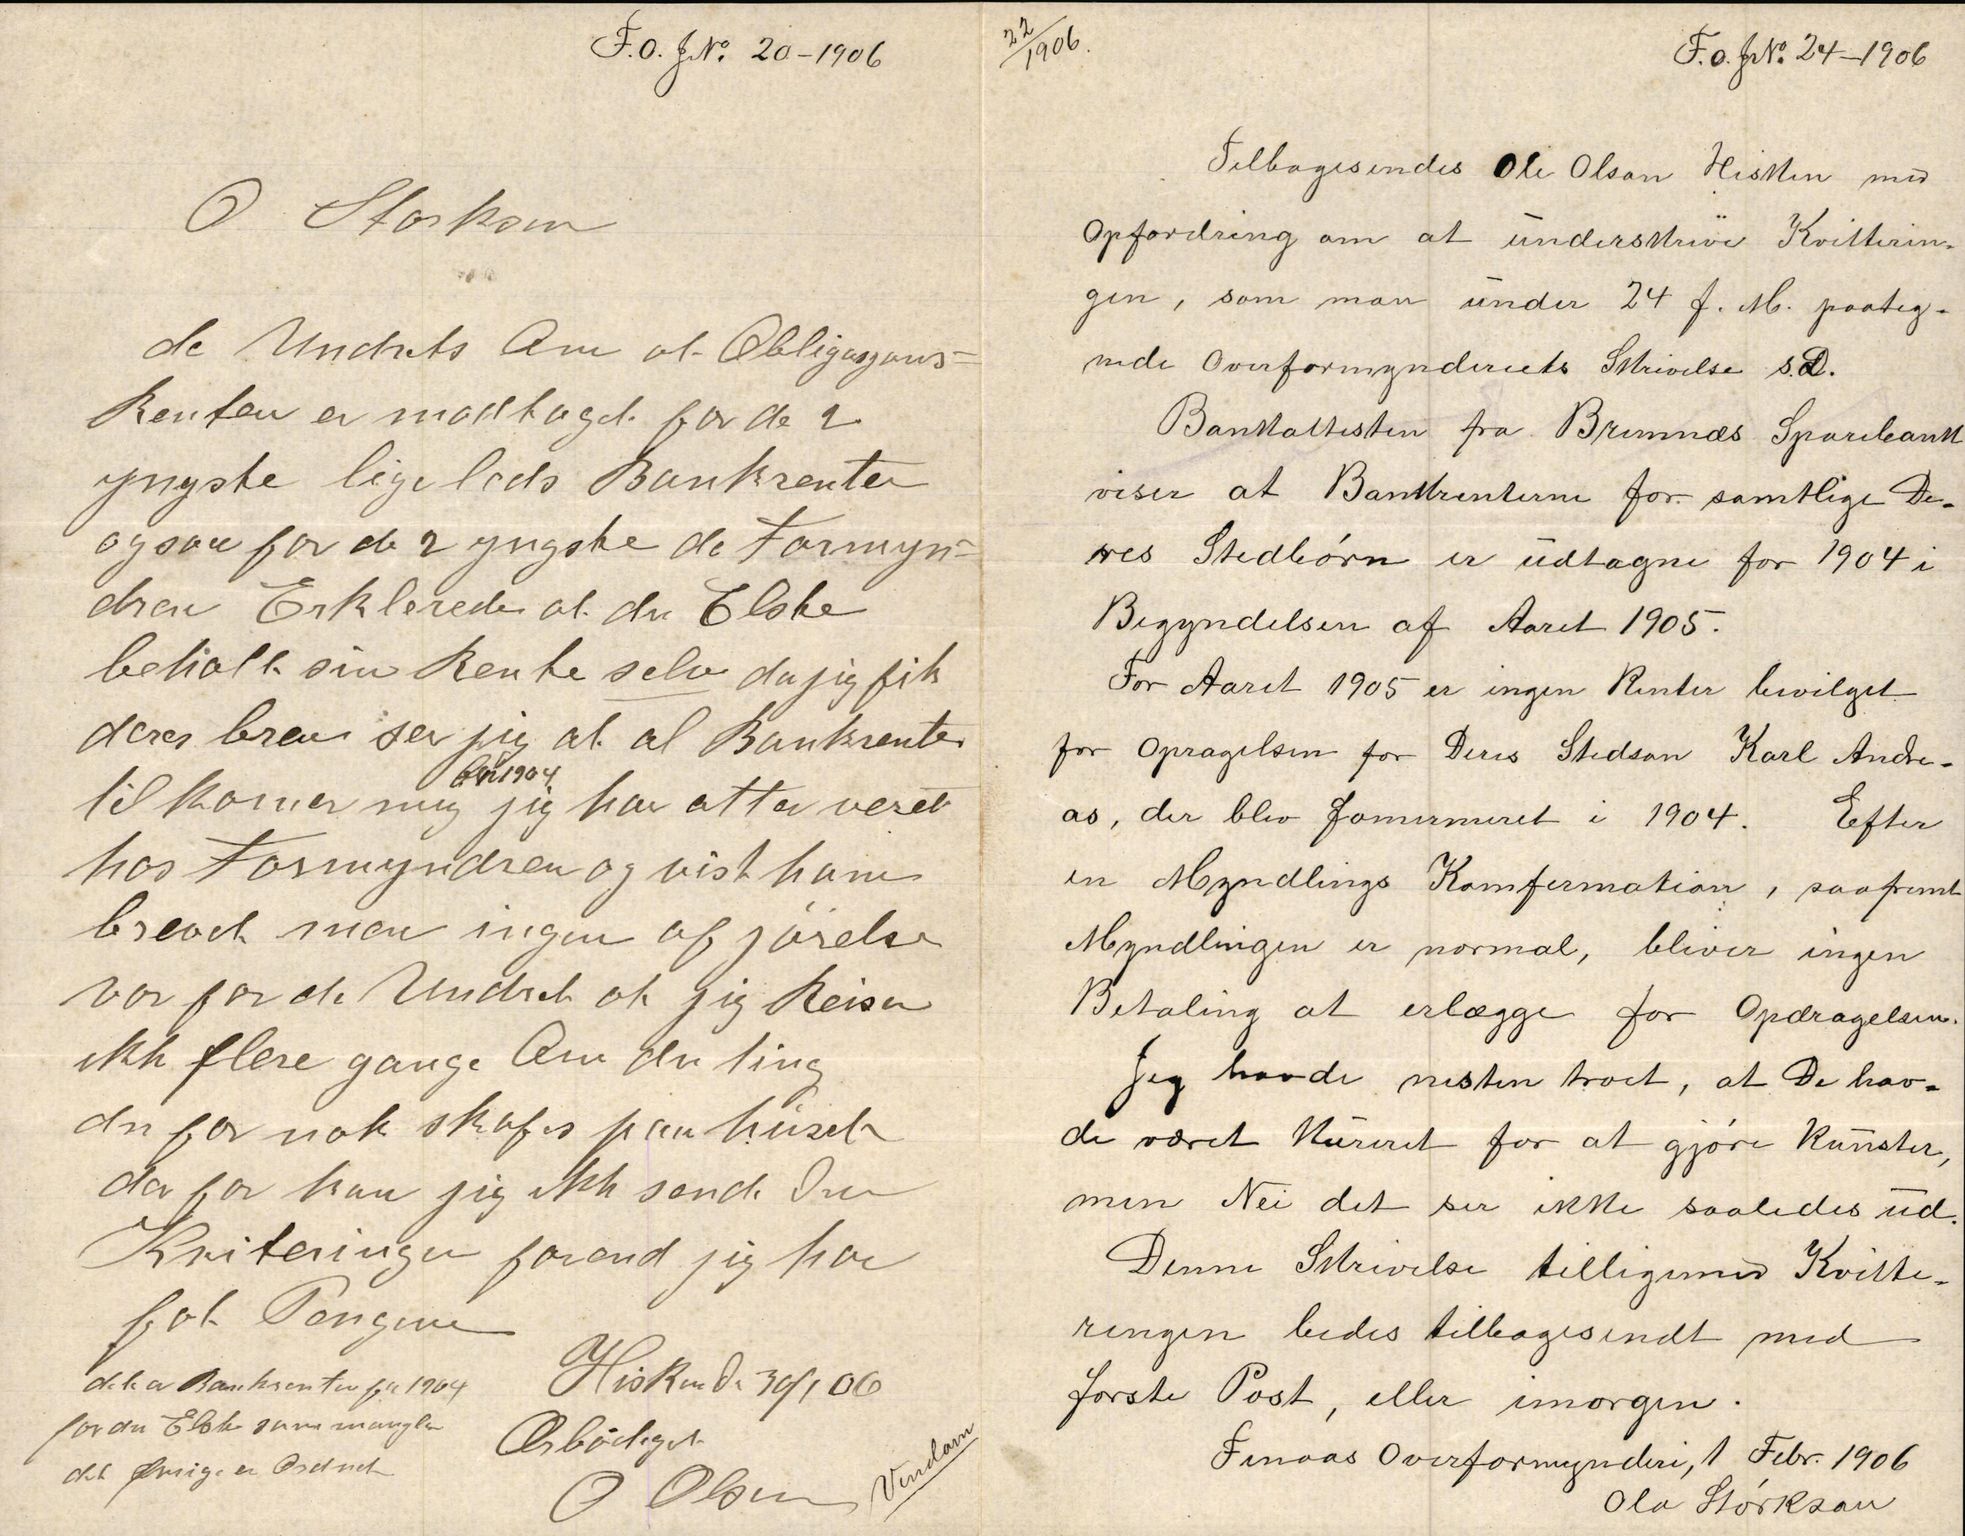 F.O. JNo. 20-1906
O Storksen
de Undrets Om at Obligasjons=
Renten er modtaget for de 2
yngste lige leds Bankrenten
ogsaa for de 2 yngste de Formyn=
dren Erklerede at den Elste
beholt sin Rente selv da jeg fik
deres brev ser jeg at al Bankrenter
for 1904
til komer mig jeg har atter veret
hos Formyndren og vist ham
brevet men ingen afjørelse
vor for de Undret at jeg Reiser
ikk flere gange Om den ting
den for nok skafes paa huset
der for kan jeg ikk sende Den
Kviteringen forend jeg har
fot Pengene
det er Bankrenten fra 1904
for den Elste som mangler
det Øvrige er Ordnet
Hisken De 30/1 06
Ærbødigst
O Olsen
Vendavn
22/1906.
F.O. JNo. 24-1906
Tilbagesendes Ole Olson Hisken med
Opfordring om at underskrive Kvitterin-
gen, som man under 24 f. M. paateg-
nede Overformynderiets Skrivelse s.D.
Bankattesten fra Bremnæs Sparebank
viser at Bankrenterne for samtlige De-
res Stedbörn er udtagne for 1904 i
Begyndelsen af Aaret 1905.
For Aaret 1905 er ingen Renter bevilget
for Opragelsen for Deres Stedsøn Karl Andre-
as, der blev fomermeret i 1904. Efter
en Myndlings Komfermation, saafremt
Myndlingen er normal, bliver ingen
Betaling at erlægge for Opdragelsen.
Jeg havde nesten troet, at De hav-
de været kureret for at gjöre Kunster,
men Nei det ser ikke saaledes ud.
Denne Skrivelse tilligemed Kvitte-
ringen bedes tilbagesendt med
förste Post, eller imorgen.
Finaas Overformynderi, 1 Febr. 1906
Ola Störkson